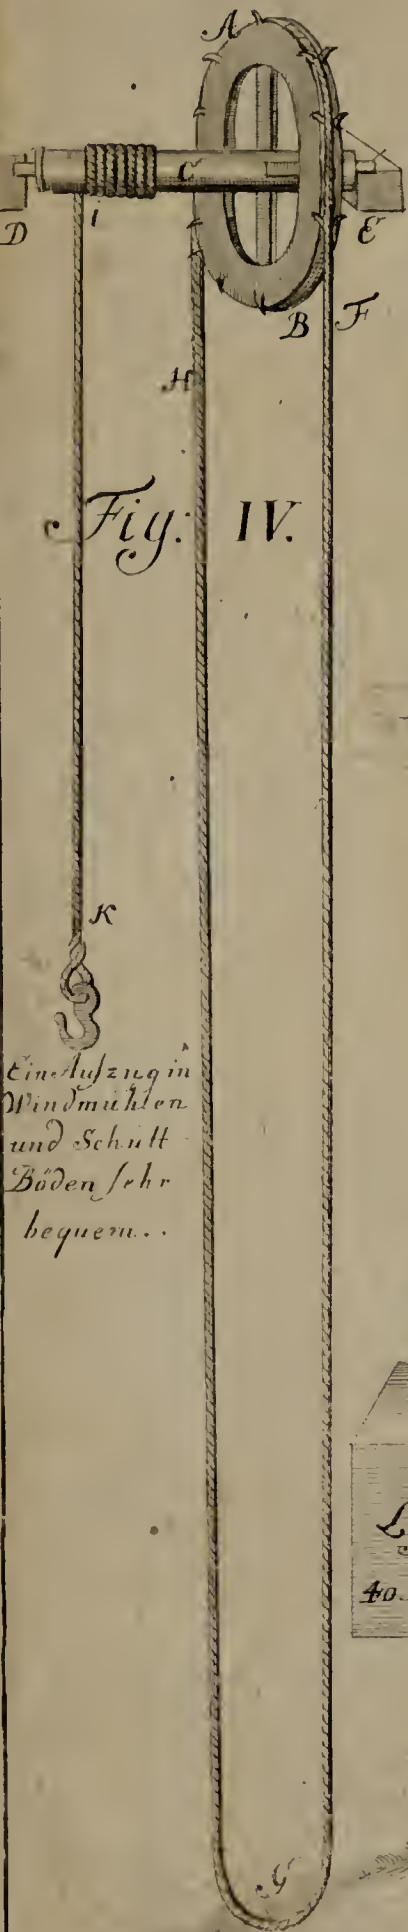 A
C
D
i
E
B
F
H
Fig. IV.
K
Ein Aufzug in
Windmühlen
und Schütt
Böden sehr
bequem..
L
40.
G